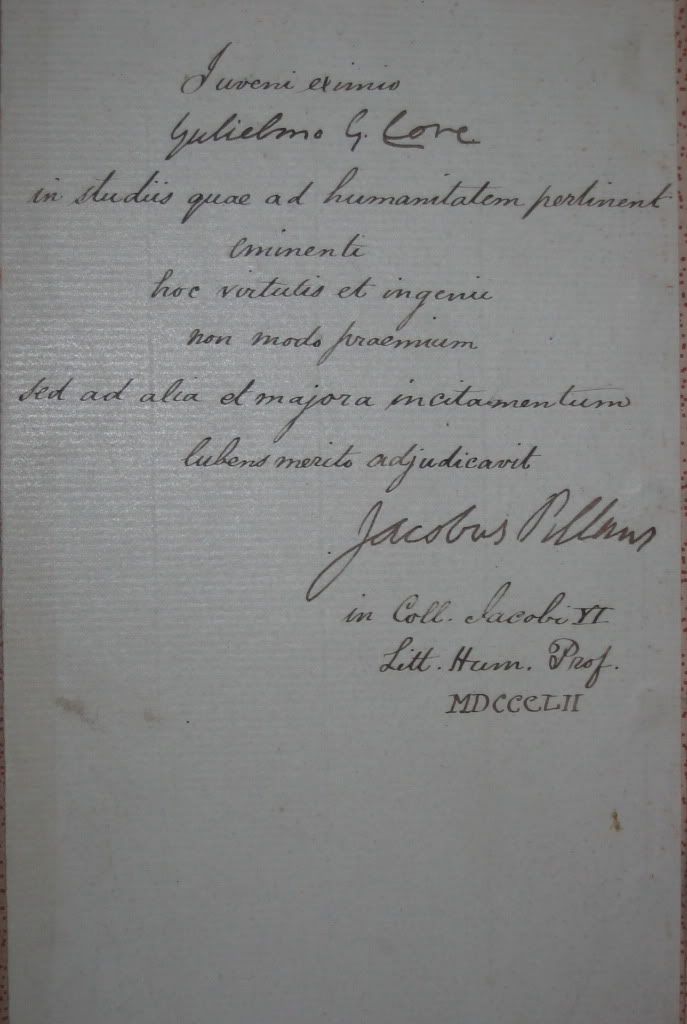 Juveni eximio
Gulielmo G. Love
in studiis quae ad humanitatem pertinent
eminenti
hoc virtutis et ingenii
non modo praemium
sed ad alia et majora incitamentum
lubens merito adjudicavit
Jacobus Pillans
in Coll. Jacobi VI
Litt. Hum. Prof.
MDCCCLII